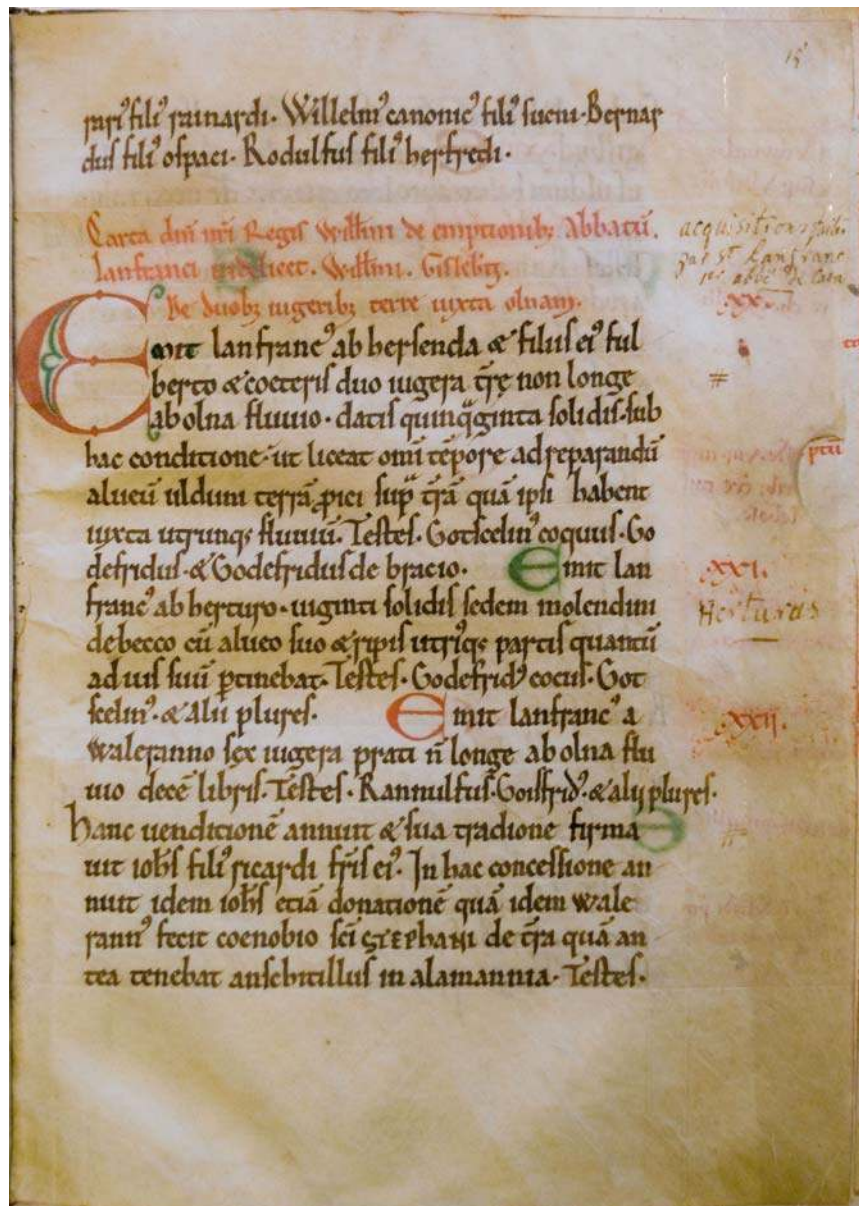 15
rari᾽ fili᾽ rainardi. Willelm᾽ canonic᾽ fili᾽ sueni. Bernar
dus fili᾽ ospaci. Rodulfus fili᾽ herfredi.
Carta dñi nr̄i Regis Willm̄i de emptionib; Abbatū.
lanfranci Willm̄i. Gisleb̄ti.
De duob; iugerib; terre iuxta olnam.
Emit lanfranc᾽ ab hersenda & filiis ei᾽ ful
berto & coeteris duo iugera tr̄ę non longe
ab olna fluuio. datis quinq̄ginta solidis. sub
hac conditione. ut liceat omī tēpore ad reparandū
alueū uldum terrā proici sup̄ tr̄ā quā ipsi habent
iuxta utrunq; fluuiū. Testes. Gotscelin᾽ coquus. Go
defridus. & Godefridus de bracio. Emit lan
franc᾽ ab herturo. uiginti solidis sedem molendini
de becco cū alueo suo & ripis utriq; partis quantū
ad ius suū p̄tinebat. Testes. Godefrid᾽ cocus. Got
scelin᾽. & Alii plures. Emit lanfranc᾽ a
Waleranno sex iugera prati n̄ longe ab olna flu
uio decē libris. Testes. Rannulfus. Goisfrid᾽. & alij plures.
Hanc uenditionē annuit & sua tradione firma
uit ioh̄s fili᾽ ricardi fr̄is ei᾽. In hac concessione an
nuit idem ioh̄s etiā donationē quā idem Wale
rann᾽ fecit coenobio sc̄i STEPHANI de tr̄a quā an
tea tenebat anschitillus in alamannia. Testes.
acquisitions
par St Lanfranc
abbé de Caen
xx.
xxi.
Herturus
xxii.